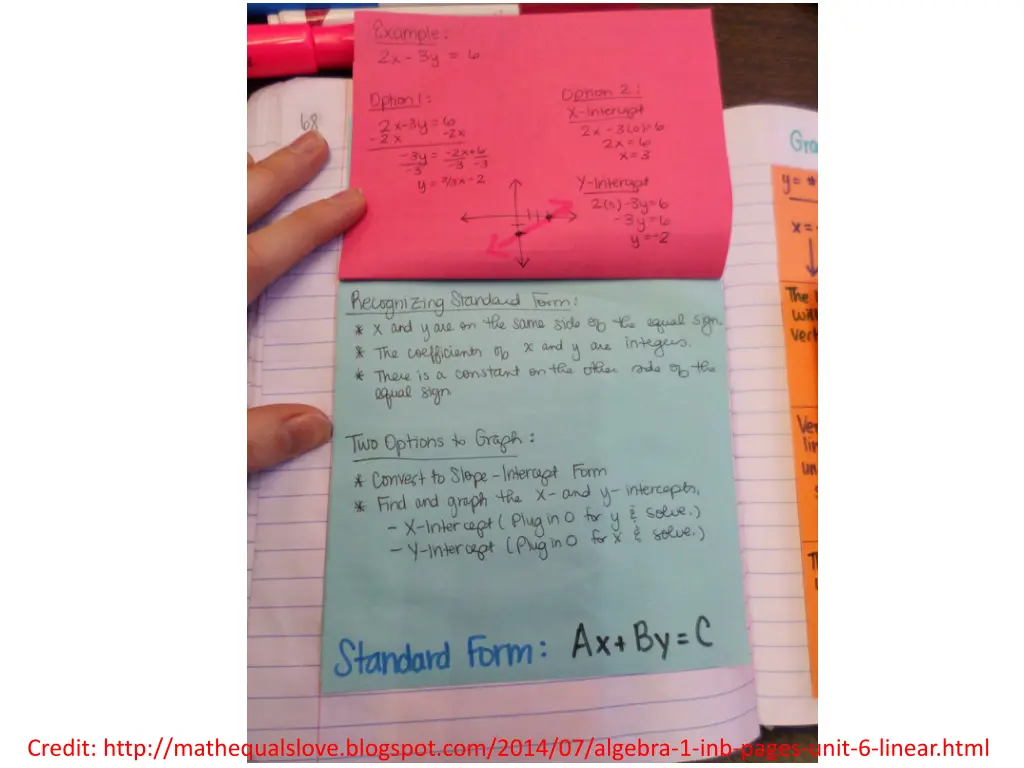 Example:
2x - 3y = 6
Option 1:
2x-3y = 6
-2x -2x
-3y = -2x+6
-3 -3 -3
y = 2/3x - 2
Option 2:
X-Intercept
2x - 3(0)=6
2x = 6
x = 3
Y-Intercept
2(0) - 3y=6
-3y=6
y=-2
68
Recognizing Standard Form:
* x and y are on the same side of the equal sign.
* The coefficients of x and y are integers.
* There is a constant on the other side of the
equal sign.
Two Options to Graph:
* Convert to Slope-Intercept Form
* Find and graph the x- and y-intercepts.
- X-Intercept (Plug in 0 for y & solve.)
- Y-Intercept (Plug in 0 for x & solve.)
Standard Form: Ax+By=C
Gra
y=
x=
The
will
vert
Ver
lin
un
Credit: http://mathequalslove.blogspot.com/2014/07/algebra-1-inb-pages-unit-6-linear.html